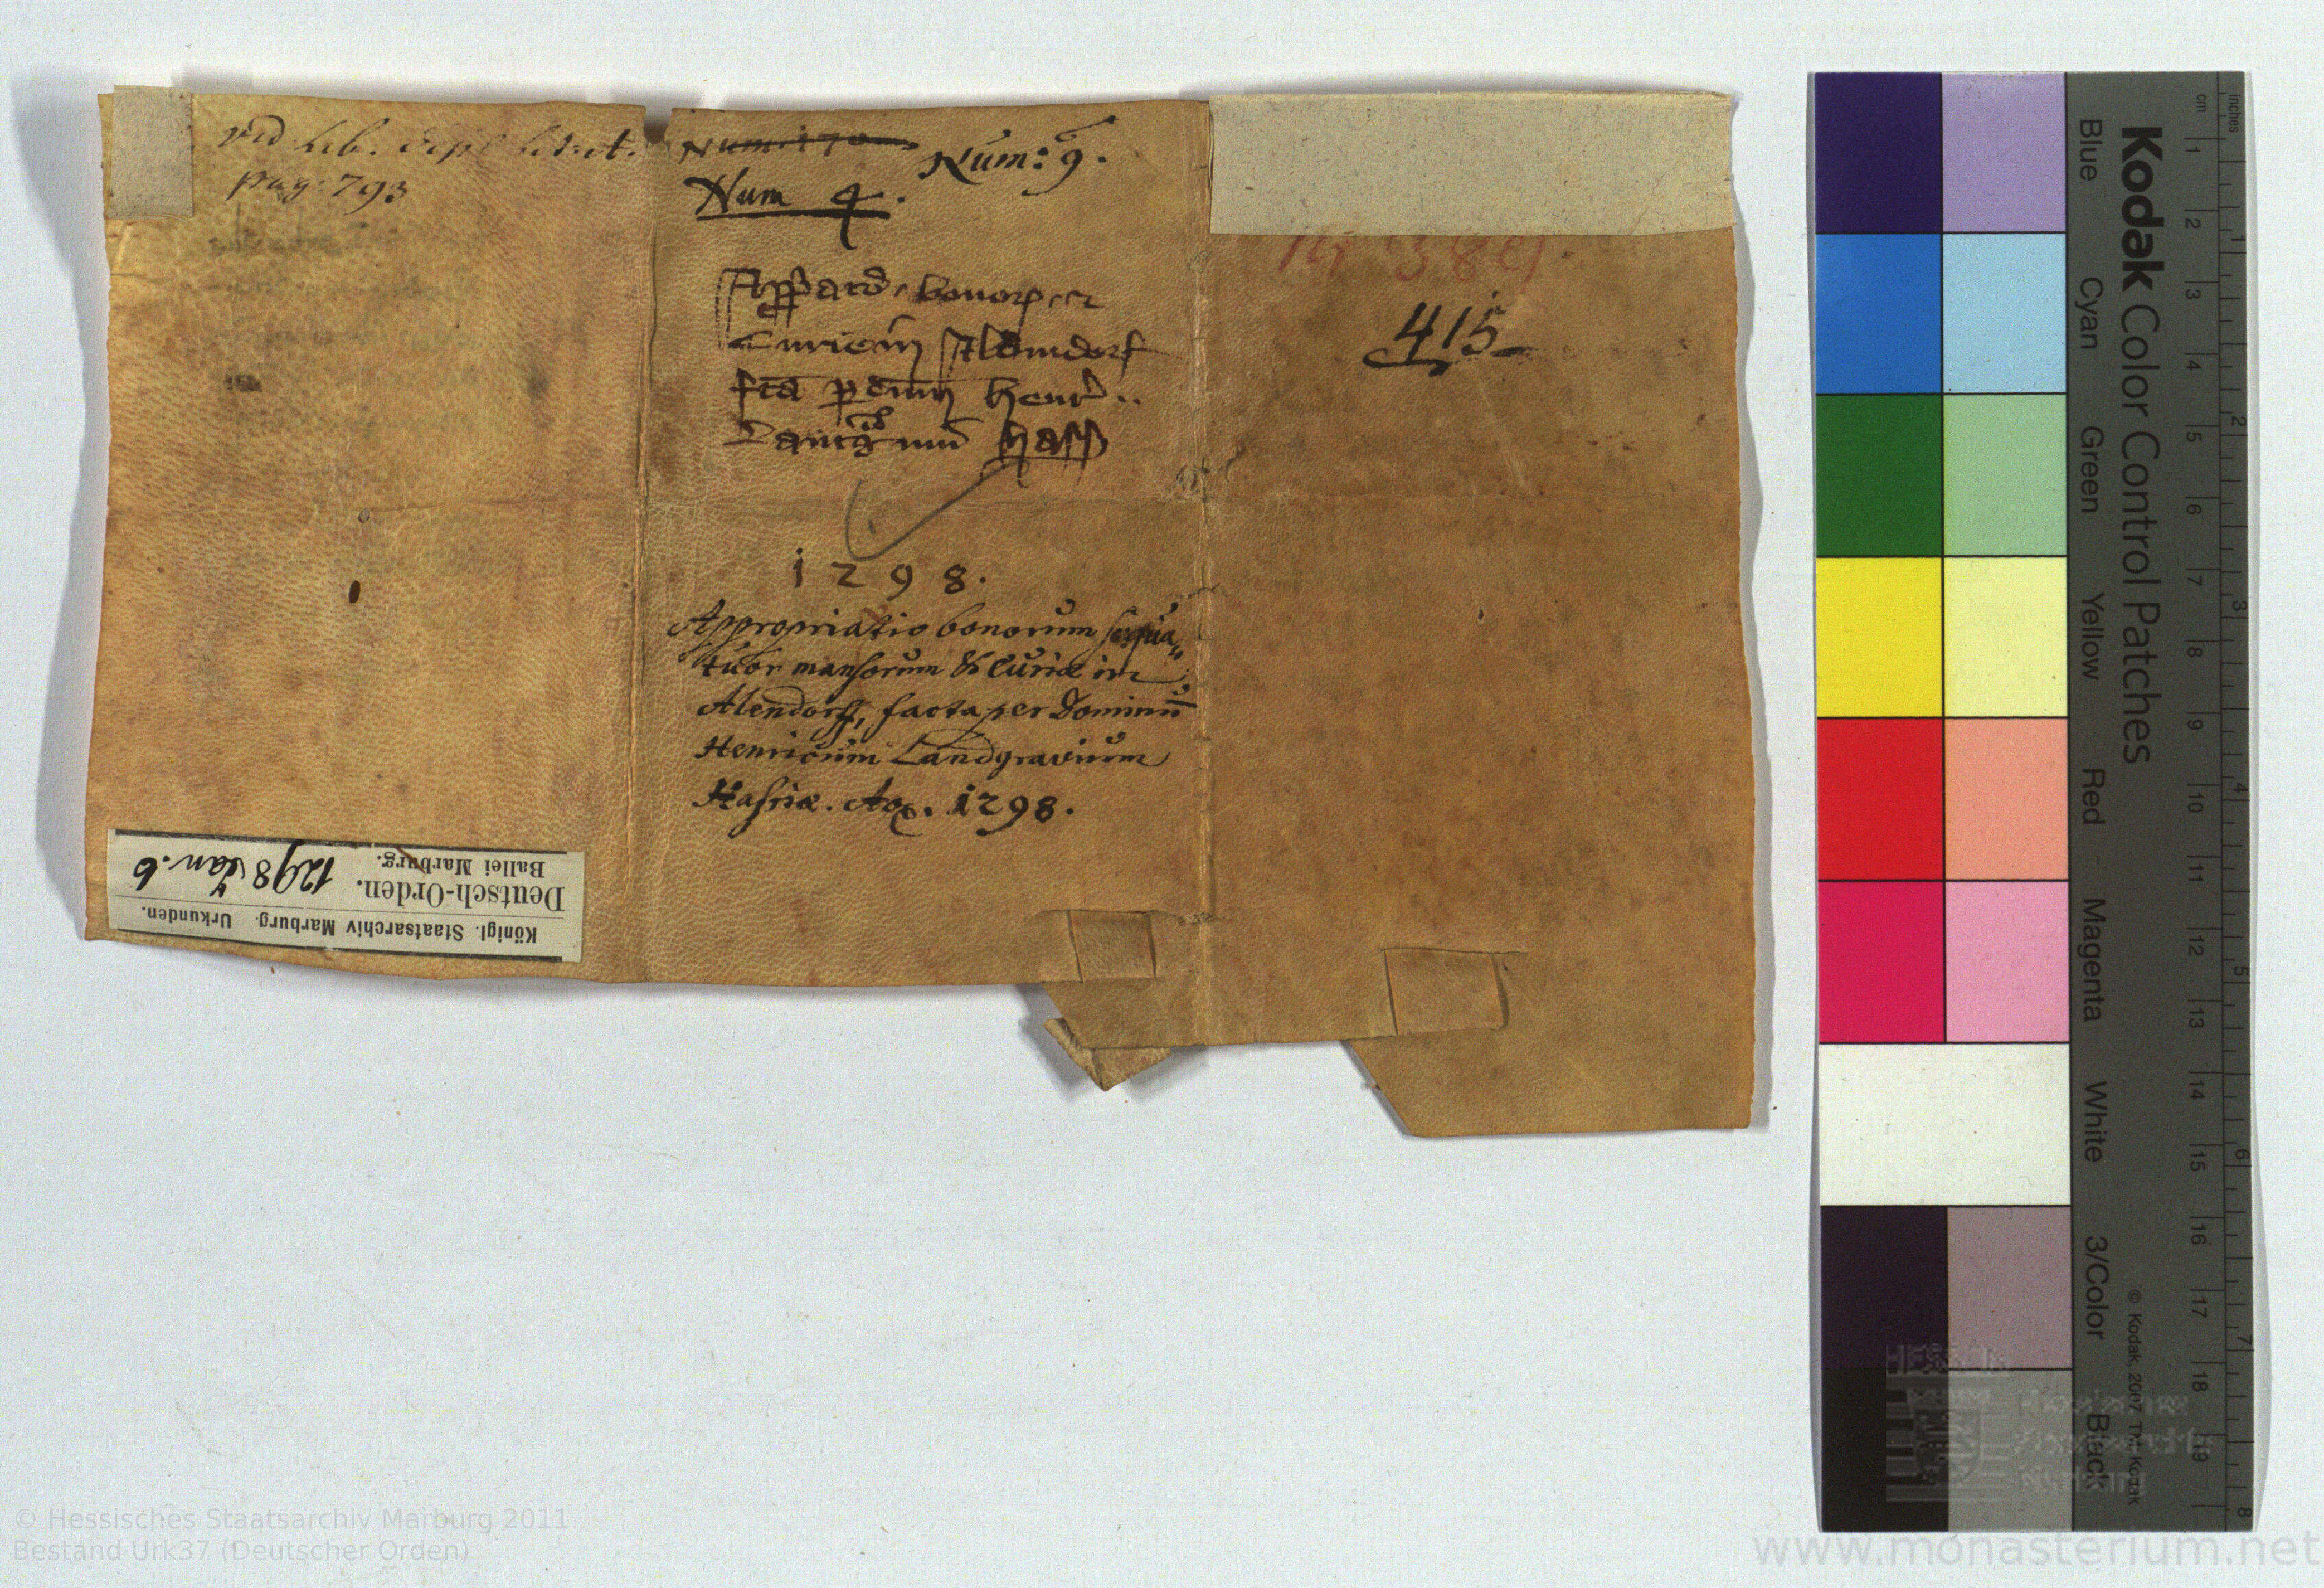 vid. lib. Copi
pag: 793
Num: 170
Num: 9.
Num 4.
bonorum et
curie in Alendorf
fca per dnm henr..
Lantg hass
1298.
Appropriatio bonorum scqua„
tuor mansorum & curiæ in
Alendorff, facta per Dominū
Henricum Landgravium
Hassiæ. Ao. 1298.
415
Königl. Staatsarchiv Marburg. Urkunden.
Deutsch-Orden. 1298 Jan. 6
Ballei Marburg.
Kodak Color Control Patches
Blue Cyan Green Yellow Red Magenta White 3/Color Black
© Kodak, 2007 TM: Kodak
cm 1 2 3 4 5 6 7 8 9 10 11 12 13 14 15 16 17 18 19
inches 1 2 3 4 5 6 7 8
Hessisches
Staatsarchiv
Marburg
© Hessisches Staatsarchiv Marburg 2011
Bestand Urk37 (Deutscher Orden)
www.monasterium.net